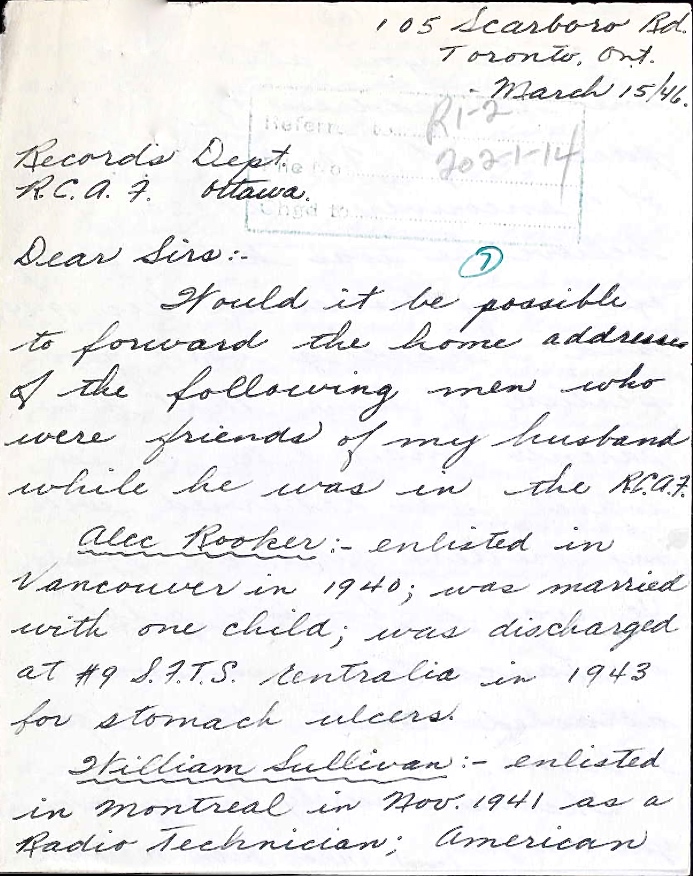 105 Scarboro Rd.
Toronto, Ont.
- March 15/46.
Referred to
R1-2
File No.
202-1-14
Chgd to
Records Dept.
R.C.A.F. Ottawa.
Dear Sirs:-
7
Would it be possible
to forward the home addresses
of the following men who
were friends of my husband
while he was in the R.C.A.F.
Alec Rooker:- enlisted in
Vancouver in 1940; was married
with one child; was discharged
at #9 S.F.T.S. Centralia in 1943
for stomach ulcers.
William Sullivan:- enlisted
in Montreal in Nov. 1941 as a
Radio Technician; American